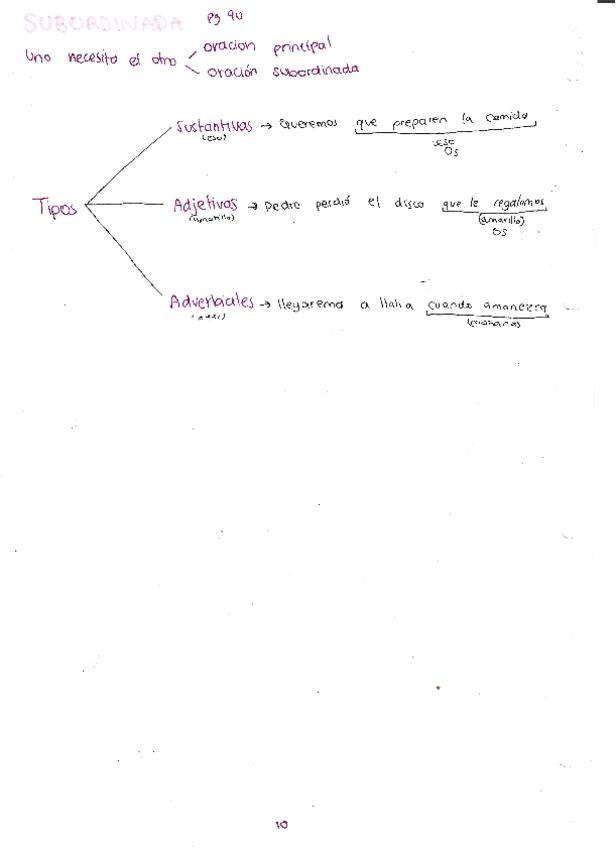 SUBORDINADA pg 90
Uno necesita el otro oracion principal
oración subordinada
Sustantivas → Queremos que preparen la comida
(eso) eso
OS
Tipos Adjetivas → Pedro perdió el disco que le regalamos
(amarillo) (amarillo)
OS
Adverbiales → llegaremo a Italia cuando amanezca
10